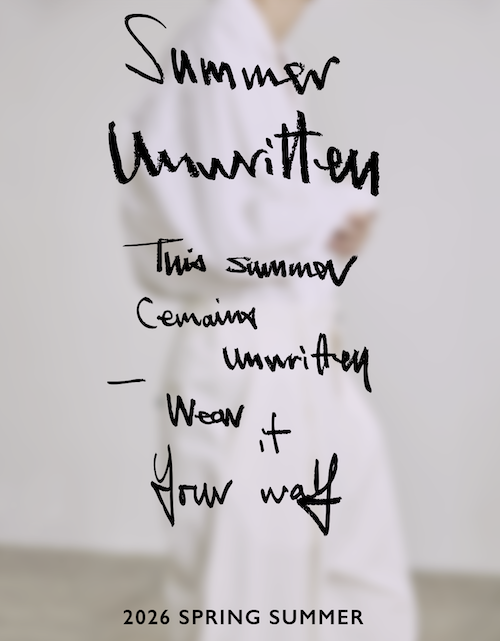 Summer
Unwritten
This summer
remains
unwritten
— Wear it
your way
2026 SPRING SUMMER